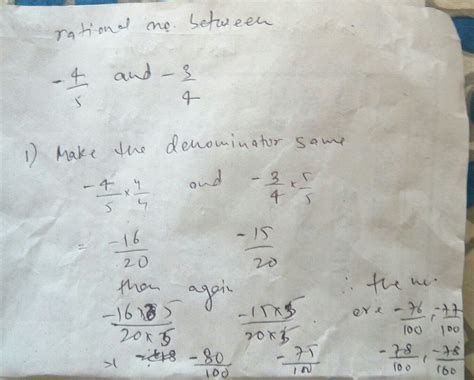 rational no. between
-4/5 and -3/4
1) Make the denominator same
-4/5 × 4/4 and -3/4 × 5/5
= -16/20 -15/20
then again ∴ the no.
-16×5/20×5 -15×5/20×5 are -76/100, -77/100
-80/100 -75/100 -78/100, -78/100